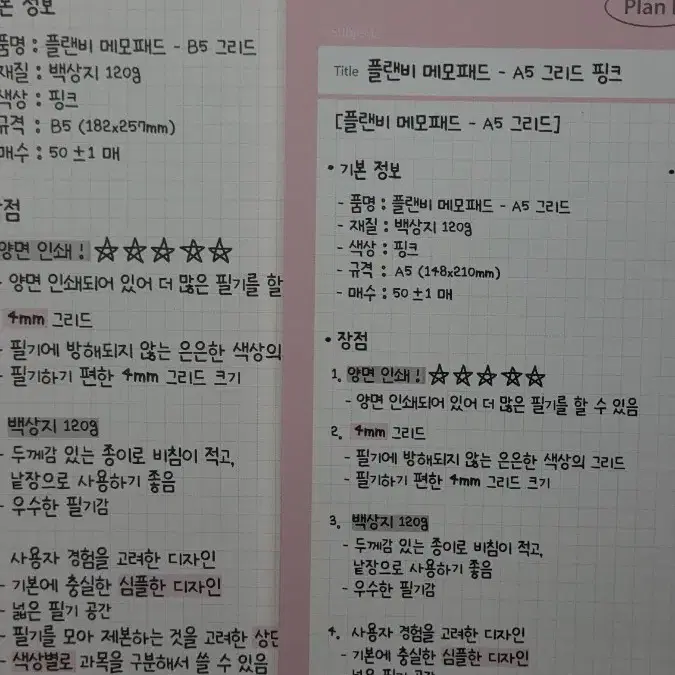 본 정보
품명 : 플랜비 메모패드 - B5 그리드
재질 : 백상지 120g
색상 : 핑크
규격 : B5 (182x257mm)
매수 : 50 ±1 매
점
양면 인쇄 ! ☆☆☆☆☆
- 양면 인쇄되어 있어 더 많은 필기를 할
4mm 그리드
- 필기에 방해되지 않는 은은한 색상의
- 필기하기 편한 4mm 그리드 크기
백상지 120g
- 두께감 있는 종이로 비침이 적고,
낱장으로 사용하기 좋음
- 우수한 필기감
사용자 경험을 고려한 디자인
- 기본에 충실한 심플한 디자인
- 넓은 필기 공간
- 필기를 모아 제본하는 것을 고려한 상단
- 색상별로 과목을 구분해서 쓸 수 있음
Plan
Subject.
Title 플랜비 메모패드 - A5 그리드 핑크
[플랜비 메모패드 - A5 그리드]
• 기본 정보
- 품명 : 플랜비 메모패드 - A5 그리드
- 재질 : 백상지 120g
- 색상 : 핑크
- 규격 : A5 (148x210mm)
- 매수 : 50 ±1 매
• 장점
1. 양면 인쇄 ! ☆☆☆☆☆
- 양면 인쇄되어 있어 더 많은 필기를 할 수 있음
2. 4mm 그리드
- 필기에 방해되지 않는 은은한 색상의 그리드
- 필기하기 편한 4mm 그리드 크기
3. 백상지 120g
- 두께감 있는 종이로 비침이 적고,
낱장으로 사용하기 좋음
- 우수한 필기감
4. 사용자 경험을 고려한 디자인
- 기본에 충실한 심플한 디자인
- 넓은 필기 공간